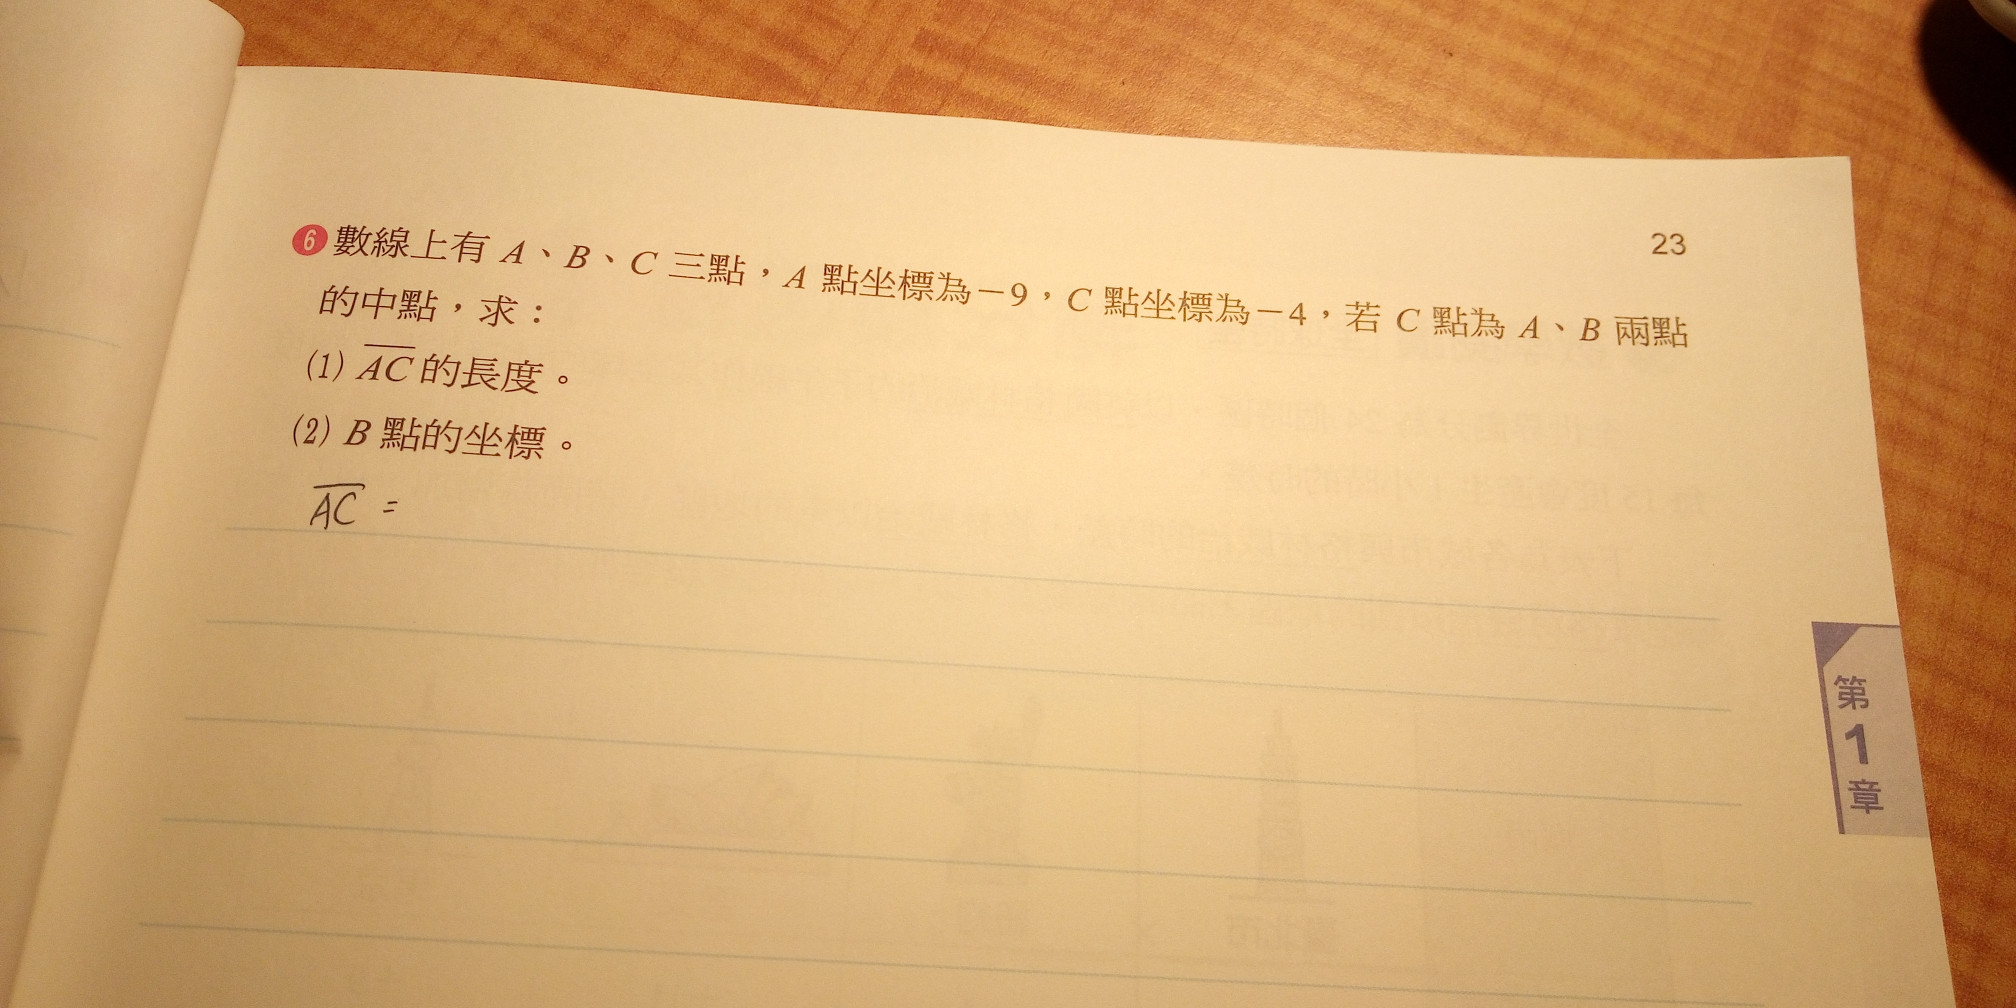 23
❻數線上有 A、B、C 三點，A 點坐標為－9，C 點坐標為－4，若 C 點為 A、B 兩點
的中點，求：
(1) AC 的長度。
(2) B 點的坐標。
AC =
第
1
章